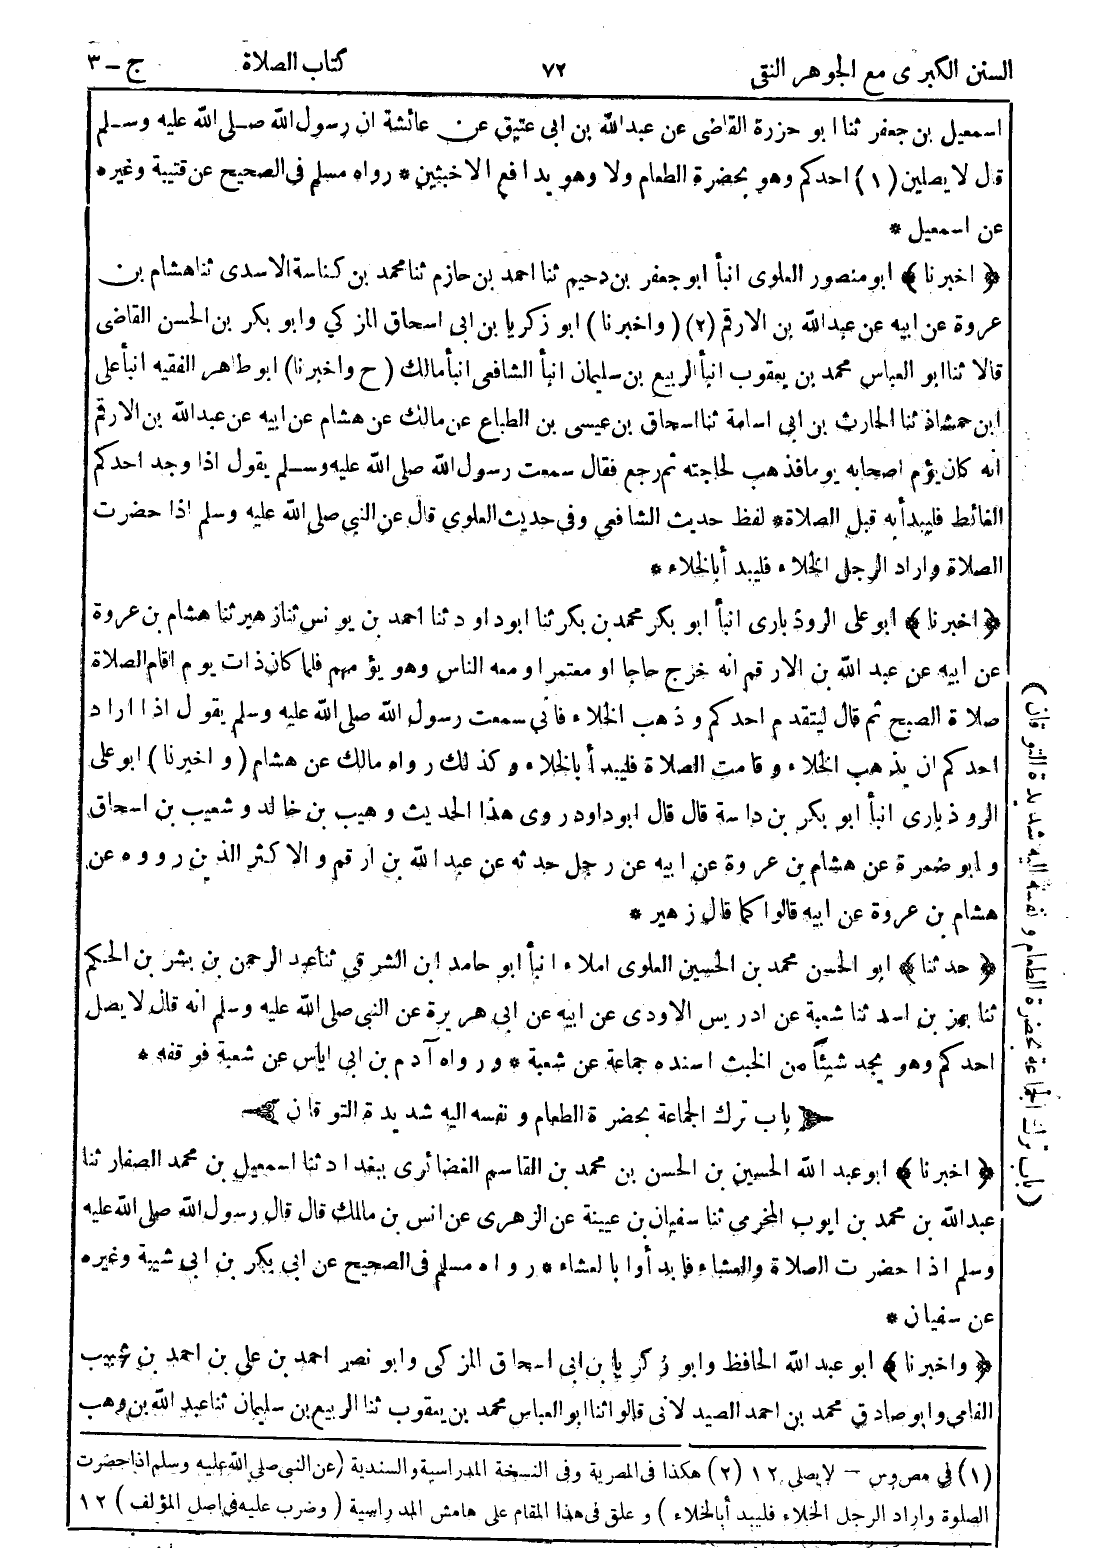 السنن الكبرى مع الجوهر النقى ٧٢ كتاب الصلاة ج ـ ٣
اسمعيل بن جعفر ثنا ابو حزرة القاضى عن عبد الله بن ابى عتيق عن عائشة ان رسول الله صلى الله عليه وسلم
قال لا يصلين (١) احدكم وهو بحضرة الطعام ولا وهو يدافع الاخبثين * رواه مسلم فى الصحيح عن قتيبة وغيره
عن اسمعيل *
﴿ اخبرنا ﴾ ابو منصور العلوى انبأ ابو جعفر بن دحيم ثنا احمد بن حازم ثنا محمد بن كناسة الاسدى ثنا هشام بن
عروة عن ابيه عن عبد الله بن الارقم (٢) (واخبرنا) ابو زكريا بن ابى اسحاق المزكي وابو بكر بن الحسن القاضى
قالا ثنا ابو العباس محمد بن يعقوب انبأ الربيع بن سليمان انبأ الشافعى انبأ مالك (ح واخبرنا) ابو طاهر الفقيه انبأ على
ابن حمشاذ ثنا الحارث بن ابى اسامة ثنا اسحاق بن عيسى بن الطباع عن مالك عن هشام عن ابيه عن عبد الله بن الارقم
انه كان يؤم اصحابه يوما فذهب لحاجته ثم رجع فقال سمعت رسول الله صلى الله عليه وسلم يقول اذا وجد احدكم
الغائط فليبدأ به قبل الصلاة * لفظ حديث الشافعي وفى حديث العلوي قال عن النبي صلى الله عليه وسلم اذا حضرت
الصلاة واراد الرجل الخلاء فليبدأ بالخلاء *
﴿ اخبرنا ﴾ ابو على الروذبارى انبأ ابو بكر محمد بن بكر ثنا ابو داود ثنا احمد بن يونس ثنا زهير ثنا هشام بن عروة
عن ابيه عن عبد الله بن الارقم انه خرج حاجا او معتمرا ومعه الناس وهو يؤمهم فلما كان ذات يوم اقام الصلاة
صلاة الصبح ثم قال ليتقدم احدكم وذهب الخلاء فانى سمعت رسول الله صلى الله عليه وسلم يقول اذا اراد
احدكم ان يذهب الخلاء وقامت الصلاة فليبدأ بالخلاء وكذلك رواه مالك عن هشام (واخبرنا) ابو على
الروذبارى انبأ ابو بكر بن داسة قال قال ابو داود روى هذا الحديث وهيب بن خالد وشعيب بن اسحاق
وابو ضمرة عن هشام بن عروة عن ابيه عن رجل حدثه عن عبد الله بن ارقم والاكثر الذين رووه عن
هشام بن عروة عن ابيه قالوا كما قال زهير *
﴿ حدثنا ﴾ ابو الحسن محمد بن الحسين العلوى املاء انبأ ابو حامد ابن الشرقي ثنا عبد الرحمن بن بشر بن الحكم
ثنا بهز بن اسد ثنا شعبة عن ادريس الاودى عن ابيه عن ابى هريرة عن النبى صلى الله عليه وسلم انه قال لا يصل
احدكم وهو يجد شيئاً من الخبث اسنده جماعة عن شعبة * ورواه آدم بن ابى اياس عن شعبة فوقفه *
باب ترك الجماعة بحضرة الطعام ونفسه اليه شديدة التوقان
﴿ اخبرنا ﴾ ابو عبد الله الحسين بن الحسن بن محمد بن القاسم الغضائرى ببغداد ثنا اسمعيل بن محمد الصفار ثنا
عبد الله بن محمد بن ايوب المخرمي ثنا سفيان بن عيينة عن الزهرى عن انس بن مالك قال قال رسول الله صلى الله عليه
وسلم اذا حضرت الصلاة والعشاء فابدأوا بالعشاء * رواه مسلم فى الصحيح عن ابي بكر بن ابي شيبة وغيره
عن سفيان *
﴿ واخبرنا ﴾ ابو عبد الله الحافظ وابو زكريا بن ابى اسحاق المزكى وابو نصر احمد بن على بن احمد بن شبيب
الفامى وابو صادق محمد بن احمد الصيدلانى قالوا ثنا ابو العباس محمد بن يعقوب ثنا الربيع بن سليمان ثنا عبد الله بن وهب
(١) في مص وس – لا يصلى ١٢ (٢) هكذا فى المصرية وفى النسخة المدراسية والسندية (عن النبى صلى الله عليه وسلم اذا حضرت
الصلوة واراد الرجل الخلاء فليبدأ بالخلاء) وعلق فى هذا المقام على هامش المدراسية (وضرب عليه فى اصل المؤلف) ١٢
(باب ترك الجماعة بحضرة الطعام ونفسه اليه شديدة التوقان)